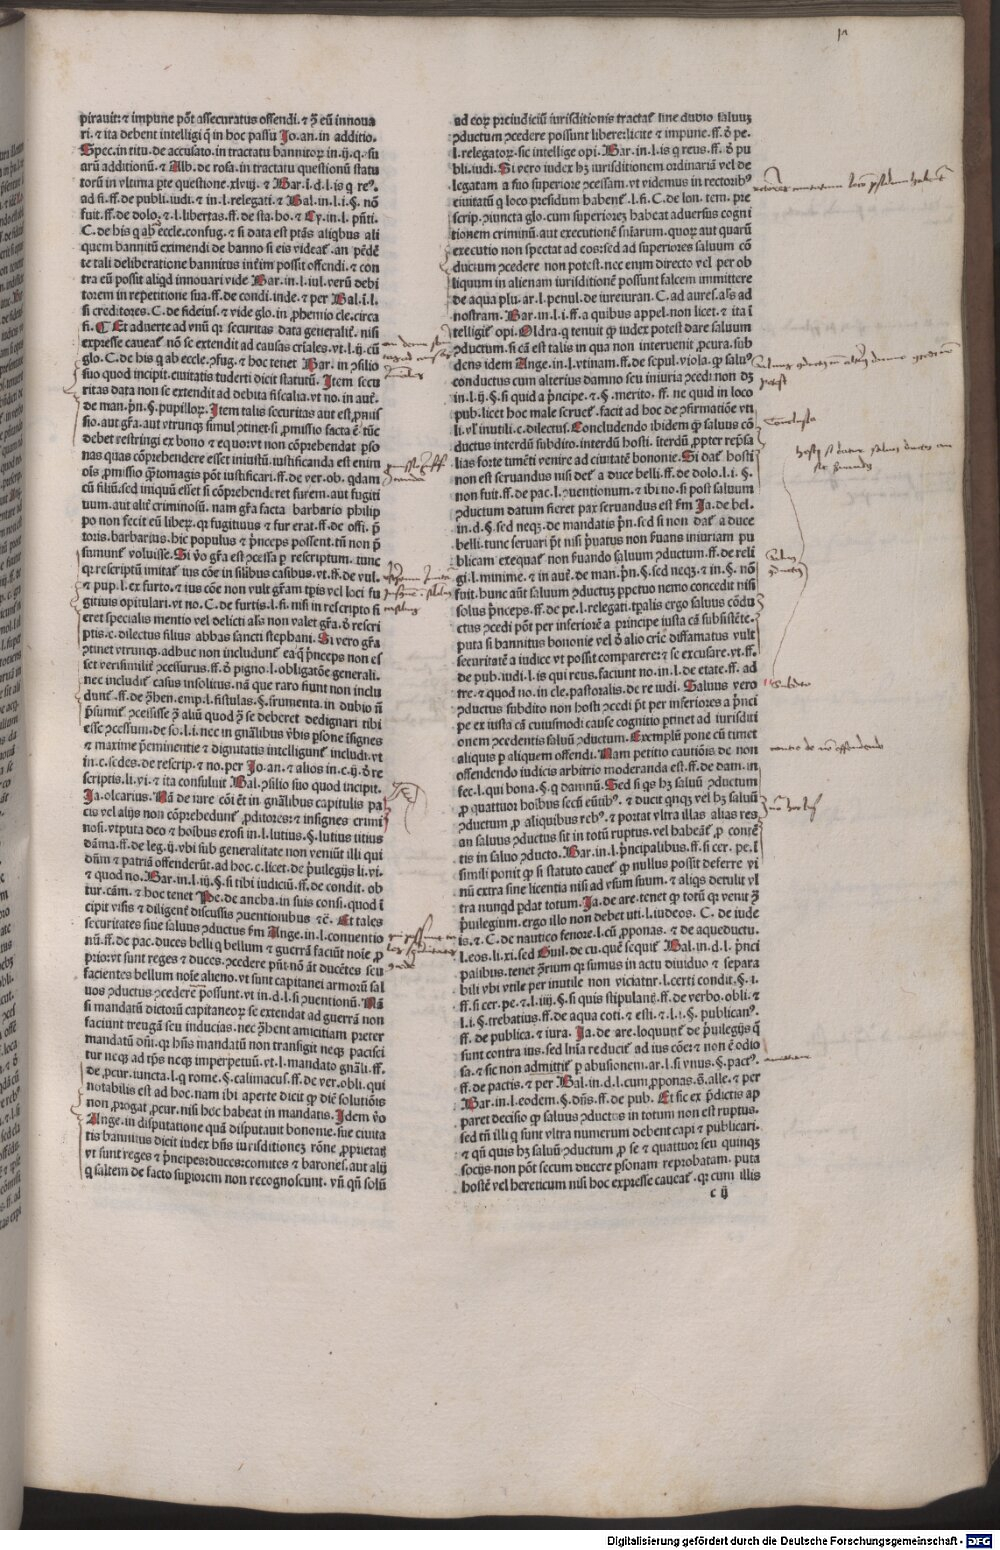 pirauit: ⁊ impune põt assecuratus offendi. ⁊ ꝯ̃ eũ innoua
ri. ⁊ ita debent intelligi q̃ in hoc passu Jo. an. in additio.
Spec. in titu. de accusato. in tractatu bannitoꝝ in. ij. q. su
arũ additionũ. ⁊ Alb. de rosa. in tractatu questionũ statu
toꝝ in vltima pte questione. xlvij. ⁊ Bar. l. d. l. is q reꝰ.
ad fi. ff. de publi. iudi. ⁊ in. l. relegati. ⁊ Bal. in. l. i. §. nõ
fuit. ff. de dolo. ⁊ l. libertas. ff. de sta. ho. ⁊ Cy. in. l. pñti.
C. de his q ab eccle. confug. ⁊ si data est ptãs aliqbus ali
quem bannitũ eximendi de banno si eis videat᷑. an pẽdẽ
te tali deliberatione bannitus intẽim possit offendi. ⁊ con
tra eũ possit aliqd innouari vide Bar. in. l. iul. verũ debi
torem in repetitione sua. ff. de condi. inde. ⁊ per Bal. i. l.
si creditores. C. de fideius. ⁊ vide glo. in ꝓhemio cle. circa
fi. ¶ Et aduerte ad vnũ qꝛ securitas data generalit᷑. nisi
expresse caueat᷑ nõ se extendit ad causas crĩales. vt. l. ij. cũ
glo. C. de his q ab eccle. ꝯfug. ⁊ hoc tenet Bar. in ꝯsilio
suo quod incipit. ciuitatis tuderti dicit statutũ. Item secu
ritas data non se extendit ad debita fiscalia. vt no. in aut᷑.
de man. p̃n. §. pupilloꝝ. Item talis securitas aut est ꝓmis
sio. aut gr̃a. aut vtrunqꝫ simul ꝯtinet. si ꝓmissio facta ẽ tũc
debet restringi ex bono ⁊ equo: vt non cõprehendat pso
nas quas cõprehendere esset iniustũ. iustificanda est enim
ois ꝓmissio q̃tomagis põt iustificari. ff. de ver. ob. qdam
cũ filiũ. sed iniquũ esset si cõprehenderet furem. aut fugiti
uum. aut alit᷑ criminosũ. nam gr̃a facta barbario philip
po non fecit eũ liberꝝ. qꝛ fugitiuus ⁊ fur erat. ff. de offi. p̃
toris. barbarius. hic populus ⁊ p̃nceps possent. tũ non p̃
sumunt᷑ voluisse. Si v̾o gr̃a est ꝯcessa p rescriptum. tunc
qꝛ rescriptũ imitat᷑ ius cõe in silibus casibus. vt. ff. de vul.
⁊ pup. l. ex facto. ⁊ ius cõe non vult gr̃am tpis vel loci fu
gitiuis opitulari. vt no. C. de furtis. l. fi. nisi in rescripto fi
eret specialis mentio vel delicti als non valet gr̃a. ꝺ̾ rescri
ptis. c. dilectus filius abbas sancti stephani. Si vero gr̃a
ꝯtinet vtrunqꝫ. adhuc non includunt᷑ ea q̃ p̃nceps non es
set verisimilit᷑ ꝯcessurus. ff. ꝺ̾ pigno. l. obligatõe generali.
nec includit᷑ casus insolitus. nã que raro fiunt non inclu
dunt᷑. ff. de ꝯ̃hen. emp. l. fistulas. §. frumenta. in dubio ñ
p̃sumit᷑ ꝯcessisse ꝯ̃ aliũ quod ꝯ̃ se deberet dedignari sibi
esse ꝯcessum. de so. l. i. nec in gñalibus v̾bis psone ĩsignes
⁊ maxime p̃eminentie ⁊ dignitatis intelligunt᷑ includi. vt
in. c. sedes. de rescrip. ⁊ no. per Jo. an. ⁊ alios in. c. ij. ꝺ̾ re
scriptis. li. vi. ⁊ ita consuluit Bal. ꝯsilio suo quod incipit.
Ja. olcarius. Nã de iure cõi ẽt in gñalibus capitulis pa
cis vel alijs non cõprehedunt᷑ ꝓditores: ⁊ insignes crimi
nosi. vtputa deo ⁊ hoĩbus exosi in. l. lutius. §. lutius titius
dãma. ff. de leg. ij. vbi sub generalitate non veniũt illi qui
dñm ⁊ patriã offenderũt. ad hoc. c. licet. de p̃uilegijs li. vi.
⁊ quod no. Bar. in. l. iij. §. si tibi iudiciũ. ff. de condit. ob
tur. cãm. ⁊ hoc tenet Pe. de ancha. in suis consi. quod ĩ
cipit visis ⁊ diligent᷑ discussis ꝯuentionibus ⁊c̃. Et tales
securitates siue saluus ꝯductus fm Ange. in. l. conuentio
nũ. ff. de pac. duces belli q bellum ⁊ guerrã faciũt noĩe ꝓ
prio: vt sunt reges ⁊ duces. ꝯcedere pñt: nõ ãt ducẽtes seu
facientes bellum noĩe alieno. vt sunt capitanei armoꝝ sal
uos ꝯductus ꝯcedere possunt. vt in. d. l. si ꝯuentionũ. Nã
si mandatũ dictoꝝ capitaneoꝝ se extendat ad guerrã non
faciunt treugã seu inducias. nec ꝯ̃hent amicitiam preter
mandatũ dñi. qꝛ hñs mandatũ non transigit neqꝫ pacisci
tur neqꝫ ad tp̃s neqꝫ imperpetuũ. vt. l. mandato gñali. ff.
de ꝓcur. iuncta. l. q rome. §. calimacus. ff. de ver. obli. qui
notabilis est ad hoc. nam ibi aperte dicit qꝙ diẽ solutiõis
non ꝓrogat ꝓcur. nisi hoc habeat in mandatis. Idem v̾o
Ange. in disputatione quã disputauit bononie. siue ciuita
tis bannitus dicit iudex hñs iurisditionẽ rõne ꝓprietatis
vt sunt reges ⁊ p̃ncipes: duces: comites ⁊ barones. aut alij
q saltem de facto supiorem non recognoscunt. vñ qñ solũ
ad eoꝝ preiudiciũ iurisditionis tractat᷑ sine dubio saluũ
ꝯductum ꝯcedere possunt libere: licite ⁊ impune. ff. ꝺ̾ pe.
l. relegatoꝝ. sic intellige opi. Bar. in. l. is q reus. ff. ꝺ̾ pu
bli. iudi. Si vero iudex hꝫ iurisditionem ordinariã vel de
legatam a suo superiore ꝯcessam. vt videmus in rectoribꝰ
ciuitatũ q loco presidum habent᷑. l. fi. C. de lon. tem. pre
scrip. ꝯiuncta glo. cum superiores habeat aduersus cogni
tionem criminũ. aut executionẽ sñiarum. quoꝝ aut quarũ
executio non spectat ad eos: sed ad superiores saluum cõ
ductum ꝯcedere non potest. nec enim directo vel per ob
liquum in alienam iurisditionẽ possunt falcem immittere
de aqua plu. ar. l. penul. de iureiuran. C. ad auref. als ad
nostram. Bar. in. l. i. ff. a quibus appel. non licet. ⁊ ita ĩ
telligit᷑ opi. Oldra. q tenuit qꝙ iudex potest dare saluum
ꝯductum. si cã est talis in qua non interuenit ꝓcura. sub
dens idem Ange. in. l. vtinam. ff. de sepul. viola. qꝙ saluꝰ
conductus cum alterius damno seu iniuria ꝯcedi non dꝫ
in. l. ij. §. si quid a p̃ncipe. ⁊ §. merito. ff. ne quid in loco
pub. licet hoc male seruet᷑. facit ad hoc de ꝯfirmatiõe vti
li. vl̃ inutili. c. dilectus. Concludendo ibidem qꝙ saluus cõ
ductus interdũ subdito. interdũ hosti. ĩterdũ ꝓpter rep̃sa
lias forte timẽti venire ad ciuitatẽ bononie. Si dat᷑ hosti
non est seruandus nisi det᷑ a duce belli. ff. de dolo. l. i. §.
non fuit. ff. de pac. l. ꝯuentionum. ⁊ ibi no. si post saluum
ꝯductum datum fieret pax seruandus est fm Ja. de bel.
in. d. §. sed neqꝫ. de mandatis p̃n. sed si non dat᷑ a duce
belli. tunc seruari p̃t nisi p̃uatus non ẜuans iniuriam pu
blicam exequat᷑ non ẜuando saluum ꝯductum. ff. de reli
gi. l. minime. ⁊ in aut᷑. de man. p̃n. §. sed neqꝫ. ⁊ in. §. nõ
fuit. hunc aũt saluum ꝯductuꝫ ppetuo nemo concedit nisi
solus p̃nceps. ff. de pe. l. relegati. tpalis ergo saluus cõdu
ctus ꝯcedi põt per inferiorẽ a principe iusta cã subsistẽte.
puta si bannitus bononie vel ꝺ̾ alio cric̃ diffamatus vult
securitatẽ a iudice vt possit comparere: ⁊ se excusare. vt. ff.
de pub. iudi. l. is qui reus. faciunt no. in. l. de etate. ff. ad
tre. ⁊ quod no. in cle. pastoralis. de re iudi. Saluus vero
ꝯductus subdito non hosti ꝯcedi p̃t per inferiores a p̃nci
pe ex iusta cã cuiusmodi: cause cognitio ptinet ad iurisditi
onem ꝯcedentis saluũ ꝯductum. Exemplũ pone cũ timet᷑
aliquis p aliquem offendi. Nam petitio cautiõis de non
offendendo iudicis arbitrio moderanda est. ff. de dam. in
fec. l. qui bona. §. q damnũ. Sed si qs hꝫ saluũ ꝯductum
ꝓ quattuor hoĩbus secũ eũtibꝰ. ⁊ ducit qnqꝫ vel hꝫ saluũ
ꝯductum ꝓ aliquibus rebꝰ. ⁊ portat vltra illas alias res
an saluus ꝯductus sit in totũ ruptus. vel habeat᷑ ꝓ contẽ
tis in saluo ꝯducto. Bar. in. l. p̃ncipalibus. ff. si cer. pe. ĩ
simili ponit qꝙ si statuto cauet᷑ qꝙ nullus possit deferre vi
nũ extra sine licentia nisi ad vsum suum. ⁊ aliqs detulit vl
tra nunqd pdat totum. Ja. de are. tenet qꝙ totũ qꝛ venit ꝯ̃
p̃uilegium. ergo illo non debet uti. l. iudeos. C. de iude
is. ⁊ C. de nautico fenore. l. cũ ꝓponas. ⁊ de aqueductu.
l. eos. li. xi. sed Guil. de cu. quẽ sequit᷑ Bal. in. d. l. p̃nci
palibus. tenet ꝯ̃rium qꝛ sumus in actu diuiduo ⁊ separa
bili vbi vtile per inutile non viciatur. l. certi condit. §. i.
ff. si cer. pe. ⁊. l. iiij. §. si quis stipulant᷑. ff. de verbo. obli. ⁊
l. i. §. trebatius. ff. de aqua coti. ⁊ esti. ⁊ l. i. §. publicanꝰ.
ff. de publica. ⁊ iura. Ja. de are. loquunt᷑ de p̃uilegijs q̃
sunt contra ius. sed lr̃ia reducit᷑ ad ius cõe: ⁊ non ẽ odio
sa. ⁊ sic non admittit᷑ p abusionem. ar. l. si vnus. §. pactꝰ.
ff. de pactis. ⁊ per Bal. in. d. l. cum ꝓponas. §. alle. ⁊ per
Bar. in. l. eodem. §. dñs. ff. de pub. Et sic ex p̃dictis ap
paret decisio qꝙ saluus ꝯductus in totum non est ruptus.
sed tñ illi q sunt vltra numerum debent capi ⁊ publicari.
⁊ qñ quis hꝫ saluũ ꝯductum ꝓ se ⁊ quattuor seu quinqꝫ
socijs non põt secum ducere psonam reprobatam. puta
hostẽ vel hereticum nisi hoc expresse caueat᷑. qꝛ cum illis
c ij
Digitalisierung gefördert durch die Deutsche Forschungsgemeinschaft - DFG